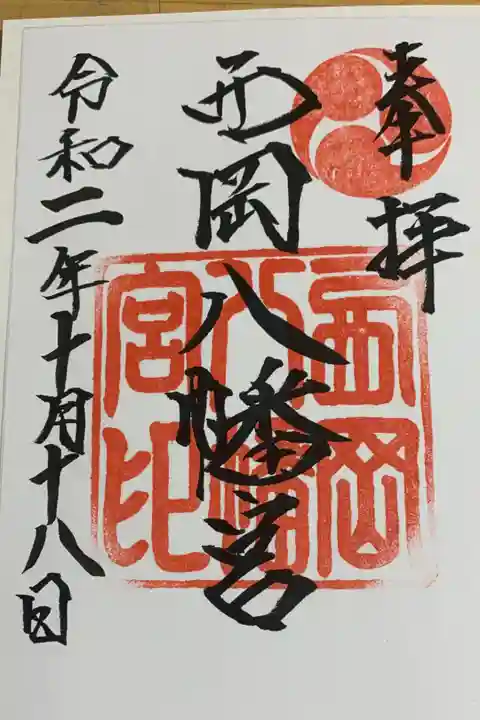 奉拝
西岡八幡宮
西岡
八幡
宮印
令和二年十月十八日